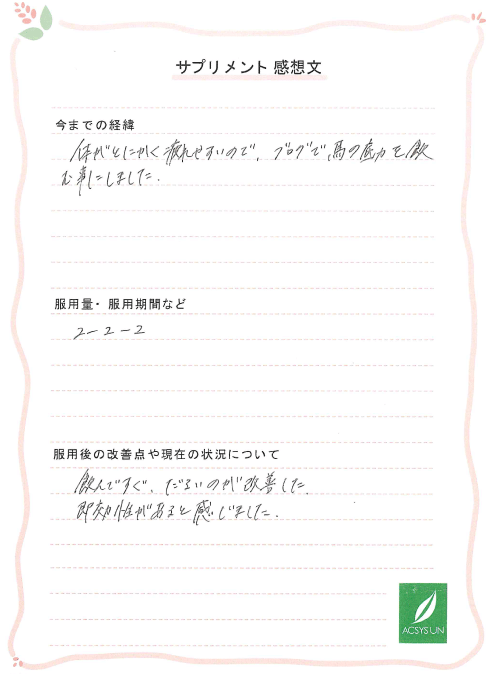 サプリメント 感想文
今までの経緯
体がとにかく疲れやすいので、ブログで、馬の底力を飲
む事にしました.
服用量・服用期間など
2-2-2
服用後の改善点や現在の状況について
飲んですぐ、だるいのが改善した.
即効性があると感じました.
ACSYSUN